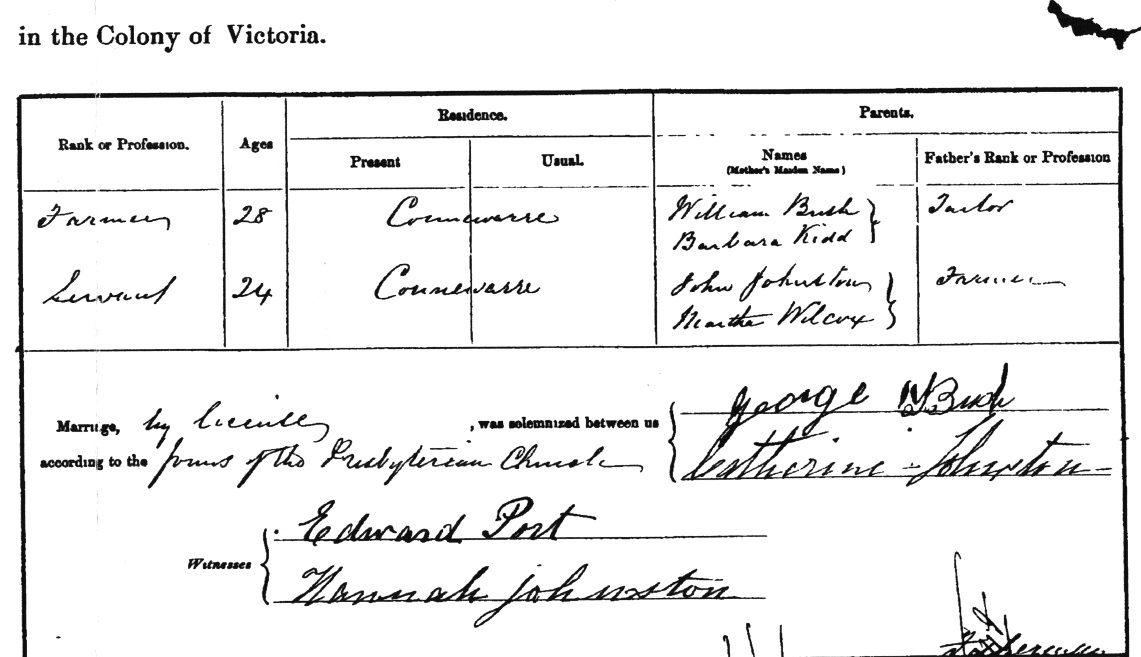 in the Colony of Victoria.
Rank or Profession. Ages Residence. Parents.
Present Usual. Names Father's Rank or Profession
(Mother's Maiden Name)
Farmer 28 Connewarre William Bush Tailor
Barbara Kidd
Servant 24 Connewarre John Johnston Farmer
Martha Wilcox
George Bush
Marriage, by license, was solemnized between us
according to the forms of the Presbyterian Church Catherine Johnston
Edward Port
Witnesses
Hannah Johnston